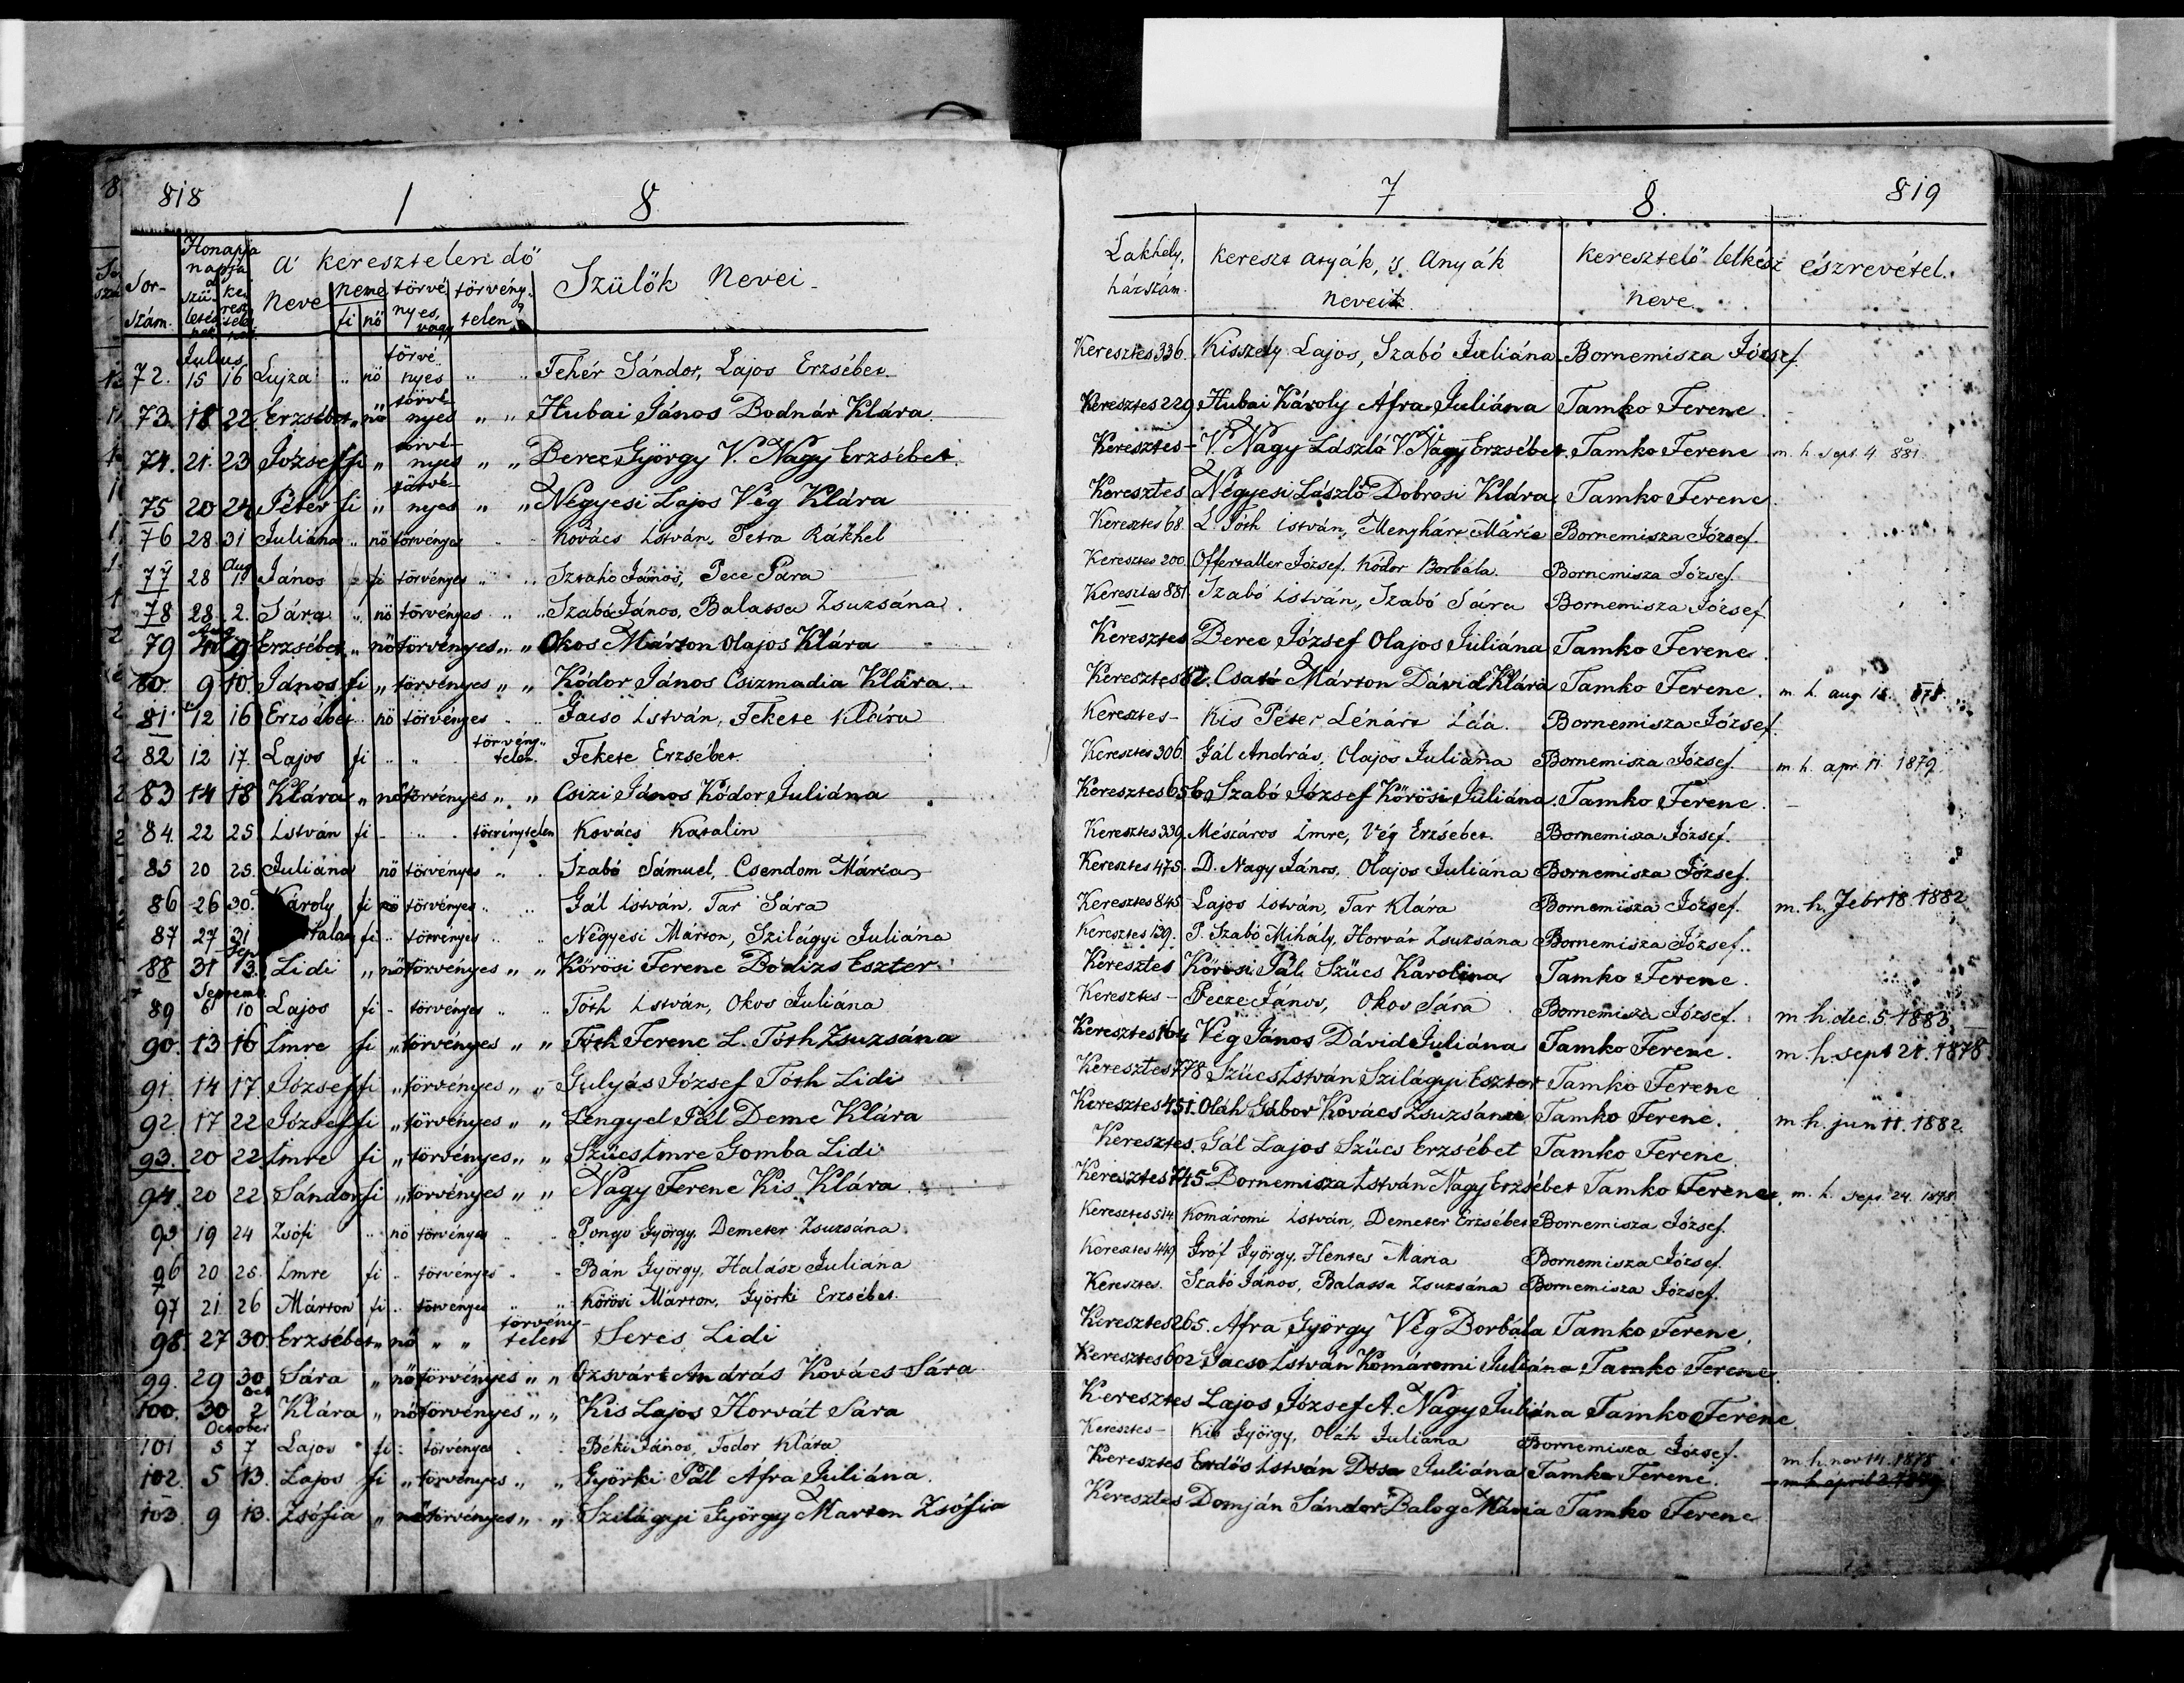 818 1 8 7 8. 819
Sor-szám. Honapja napja a' szü-letés-nek ke-resz-telés-nek a' keresztelendő neve neme fi nő törvényes, vagy törvénytelen? Szülők Nevei Lakhely, házszám. kereszt atyák, 's Anyák neveik keresztelő lelkész neve. észrevétel.
Julius
72. 15 16 Lujza " nő törvényes " " Fehér Sándor, Lajos Erzsébet Keresztes 336. Kisszely Lajos, Szabó Juliána Bornemisza József.
73. 18 22 Erzsébet " nő törvényes " " Hubai János Bodnár Klára Keresztes 229 Hubai Károly Áfra Juliána Tamko Ferenc.
74. 21. 23 József fi " törvényes " " Berec György V. Nagy Erzsébet. Keresztes - V. Nagy László V. Nagy Erzsébet. Tamko Ferenc m. h. sept. 4 881
75 20 24 Péter fi " törvényes " " Négyesi Lajos Vég Klára Keresztes Négyesi László Dobrosi Klára Tamko Ferenc.
76 28. 31 Juliána " nő törvényes Kovács István, Petra Rákhel Keresztes 68. L Tóth István, Menghárt Mária Bornemisza József.
Aug
77 28 1 János fi törvényes " " Sztahó János, Pece Sára Keresztes 200. Offertaller József. Kódor Borbála. Bornemisza József.
78 28 2. Sára " nő törvényes " " Szabó János, Balassa Zsuzsána. Keresztes 881. Szabó István, Szabó Sára Bornemisza József
79 9 Erzsébet " nő törvényes " " Okos Márton Olajos Klára Keresztes Berec József Olajos Juliána Tamko Ferenc.
80. 9 10. János fi " törvényes " " Kódor János Csizmadia Klára. Keresztes 82. Csató Márton Dávid Klára Tamko Ferenc. m. h. aug 18. 878.
81 12 16 Erzsébet nő törvényes Gacso István, Fekete Klára Keresztes - Kis Péter Lénárt Léda. Bornemisza József.
82 12 17. Lajos fi törvénytelen. Fekete Erzsébet. Keresztes 306. Gál András, Olajos Juliána Bornemisza József. m. h. apr. 11. 1879.
83 14 18 Klára " nő törvényes " " Csizi János Kódor Juliána Keresztes 656. Szabó József Kőrösi Juliána. Tamko Ferenc.
84. 22 25. István fi törvénytelen Kovács Katalin Keresztes 339. Mészáros Imre, Vég Erzsébet. Bornemisza József.
85 20 25. Juliána nő törvényes " Szabó Sámuel, Csendom Mária Keresztes 475. D. Nagy János, Olajos Juliána Bornemisza József.
86 26 30. Károly fi törvényes " " Gál István, Tar Sára Keresztes 845 Lajos István, Tar Klára Bornemisza József. m. h. Febr 18. 1882
87 27 31 fi " törvényes " " Négyesi Márton, Szilágyi Juliána Keresztes 139. P. Szabó Mihály, Horvát Zsuzsána Bornemisza József.
88 31 13. Lidi " nő törvényes " " Kőrösi Ferenc Bódizs Eszter. Keresztes Kőrösi Pál Szűcs Karolina Tamko Ferenc.
Septemb
89 6 10 Lajos fi - törvényes " " Tóth István, Okos Juliána Keresztes - Pecze János, Okos Sára Bornemisza József. m. h. dec. 5. 1883
90. 13 16 Imre fi " törvényes " " Tóth Ferenc L. Tóth Zsuzsána Keresztes 164 Vég János Dávid Juliána Tamko Ferenc. m. h. sept 21. 1878.
91. 14 17. József fi " törvényes " " Gulyás József Tóth Lidi Keresztes 778 Szűcs István Szilágyi Eszter Tamko Ferenc
92. 17. 22 József fi " törvényes " " Lengyel Pál Deme Klára Keresztes 451. Oláh Gábor Kovács Zsuzsána Tamko Ferenc. m. h. jun 11. 1882.
93. 20 22 Imre fi " törvényes " " Szűcs Imre Gomba Lidi Keresztes. Gál Lajos Szűcs Erzsébet Tamko Ferenc.
94. 20 22 Sándor fi " törvényes " " Nagy Ferenc Kis Klára. Keresztes 745 Bornemisza István Nagy Erzsébet Tamko Ferenc m. h. sept. 24. 1878
95 19 24 Zsófi " nő törvényes Pongo György, Demeter Zsuzsána. Keresztes 514 Komáromi István, Demeter Erzsébet Bornemisza József.
96 20 25. Imre fi " törvényes Bán György, Halász Juliána Keresztes 449 Gróf György, Hentes Mária Bornemisza József.
97 21 26 Márton fi " törvényes " " Kőrösi Márton, Györki Erzsébet. Keresztes. Szabó János, Balassa Zsuzsána Bornemisza József.
98. 27 30. Erzsébet " nő " " törvénytelen Seres Lidi Keresztes 265. Áfra György Vég Borbála Tamko Ferenc.
99. 29 30 Sára " nő törvényes " " Ozsvárt András Kovács Sára Keresztes 602 Gacso István Komáromi Juliána Tamko Ferenc.
Oct
100. 30 2 Klára " nő törvényes " " Kis Lajos Horvát Sára Keresztes Lajos József A. Nagy Juliána Tamko Ferenc
October
101 5 7 Lajos fi törvényes Béki János, Fodor Klára Keresztes - Kis György, Oláh Juliana Bornemisza József. m. h. nov 14. 1878
102. 5 13. Lajos fi " törvényes " " Györki Pál Áfra Juliána. Keresztes Erdős István Dósa Juliána Tamko Ferenc. m. h. april 2. 1879
103. 9 13. Zsófia " nő törvényes " " Szilágyi György Marton Zsófia Keresztes Domján Sándor Balog Mária Tamko Ferenc